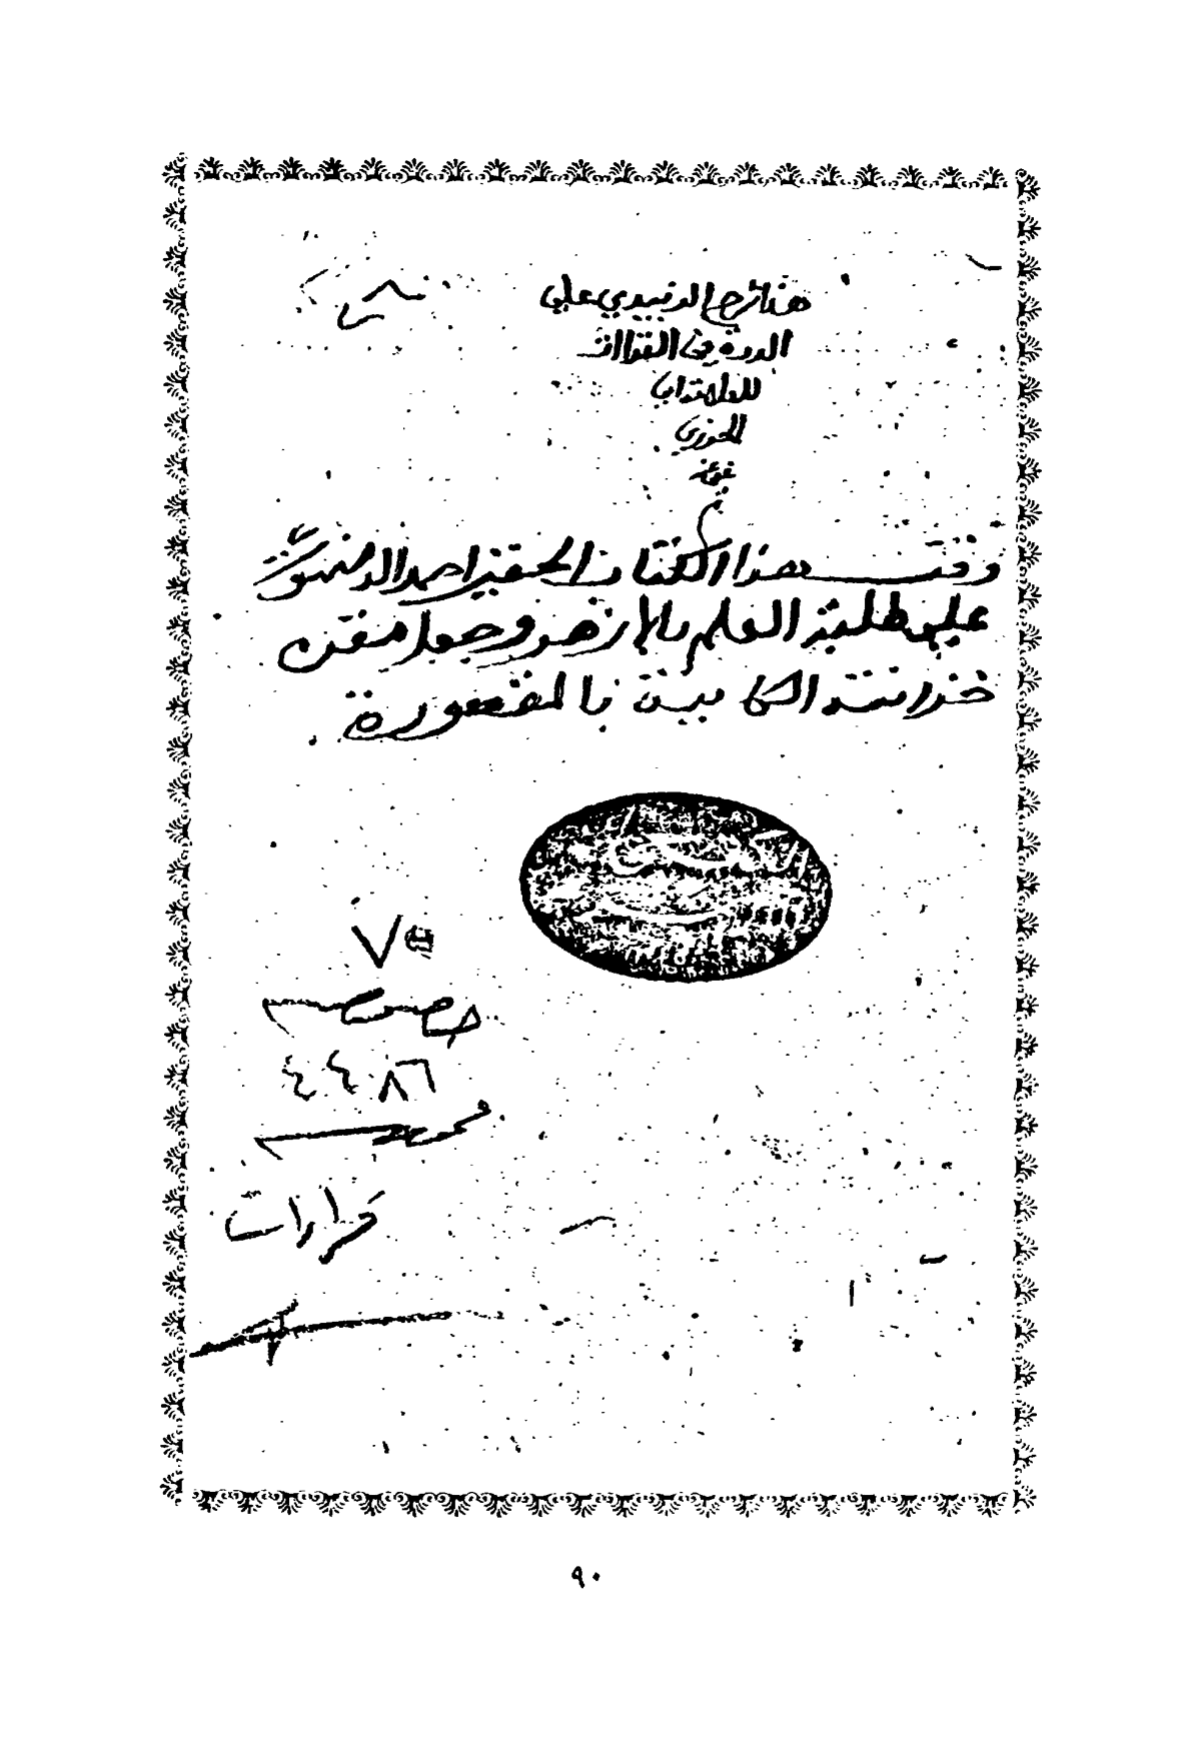 هذا شرح الزبيدي على
الدرة في القراات
للعلامة ابن
الجزري
وقف هذا الكتاب الحقير احمد الدمنهوري
على طلبة العلم بالازهر وجعل مقره
خزانته الكاينة بالمقصورة
٧٥
خصوصية
٤٤٠٨٦
عمومية
قراءات
٩٠